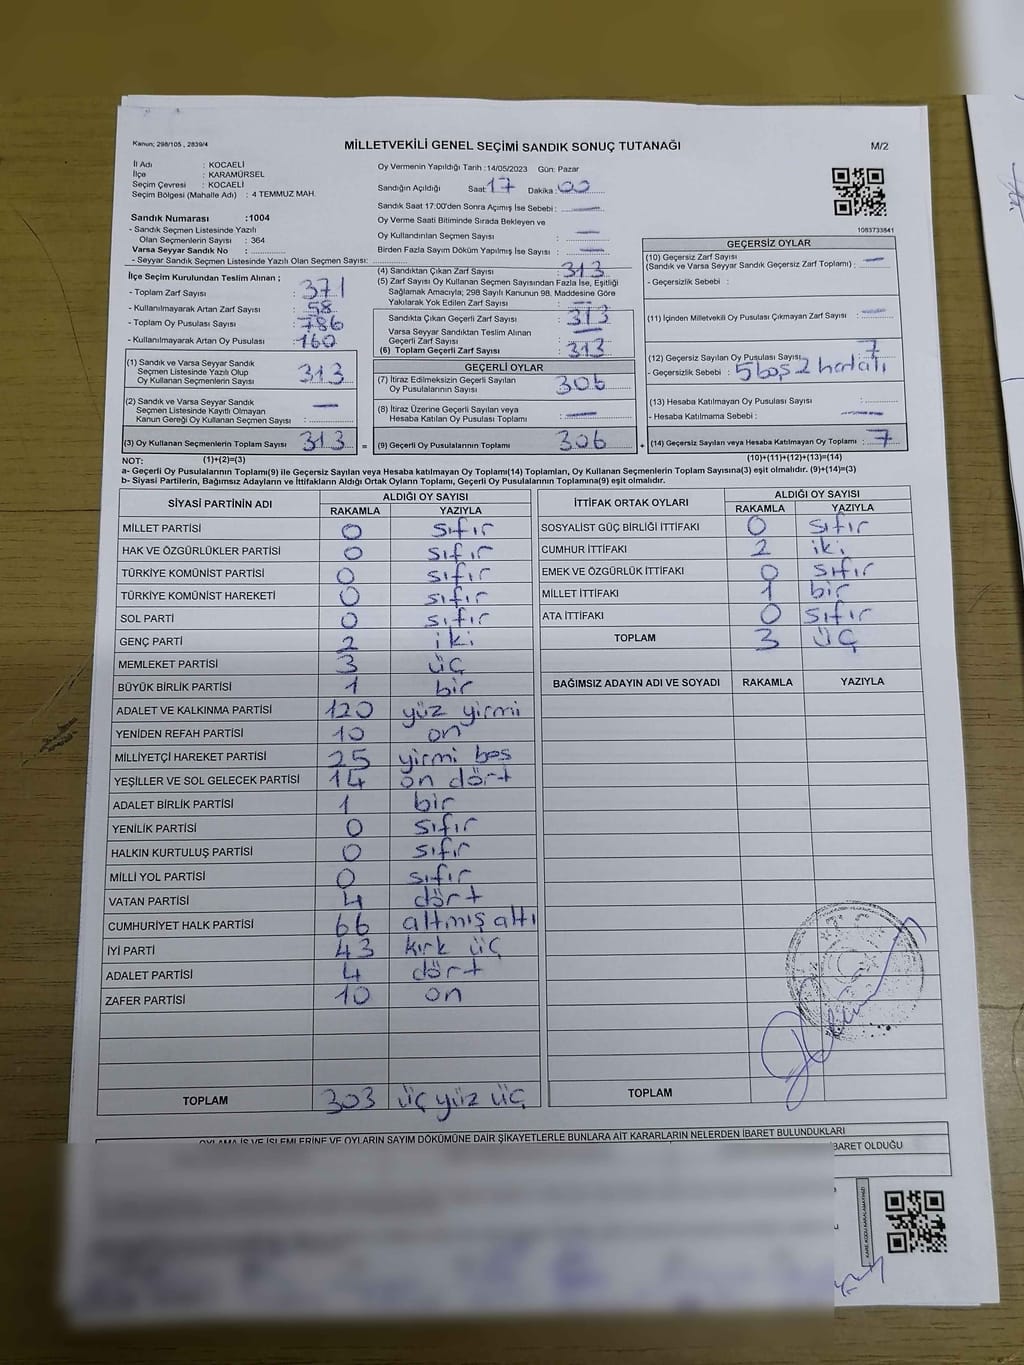 Kanun; 298/105 , 2839/4
MİLLETVEKİLİ GENEL SEÇİMİ SANDIK SONUÇ TUTANAĞI
M/2
İl Adı : KOCAELİ
İlçe : KARAMÜRSEL
Seçim Çevresi : KOCAELİ
Seçim Bölgesi (Mahalle Adı) : 4 TEMMUZ MAH.
Sandık Numarası :1004
- Sandık Seçmen Listesinde Yazılı
Olan Seçmenlerin Sayısı : 364
Varsa Seyyar Sandık No :
- Seyyar Sandık Seçmen Listesinde Yazılı Olan Seçmen Sayısı:
Oy Vermenin Yapıldığı Tarih :14/05/2023 Gün: Pazar
Sandığın Açıldığı Saat: 17 Dakika: 00
Sandık Saat 17:00'den Sonra Açımış İse Sebebi : —
Oy Verme Saati Bitiminde Sırada Bekleyen ve
Oy Kullandırılan Seçmen Sayısı : —
Birden Fazla Sayım Döküm Yapılmış İse Sayısı : —
1083733841
İlçe Seçim Kurulundan Teslim Alınan ;
- Toplam Zarf Sayısı : 371
- Kullanılmayarak Artan Zarf Sayısı : 58
- Toplam Oy Pusulası Sayısı : 786
- Kullanılmayarak Artan Oy Pusulası : 160
(1) Sandık ve Varsa Seyyar Sandık
Seçmen Listesinde Yazılı Olup
Oy Kullanan Seçmenlerin Sayısı : 313
(2) Sandık ve Varsa Seyyar Sandık
Seçmen Listesinde Kayıtlı Olmayan
Kanun Gereği Oy Kullanan Seçmen Sayısı : —
(3) Oy Kullanan Seçmenlerin Toplam Sayısı : 313 =
(4) Sandıktan Çıkan Zarf Sayısı : 313
(5) Zarf Sayısı Oy Kullanan Seçmen Sayısından Fazla İse, Eşitliği
Sağlamak Amacıyla; 298 Sayılı Kanunun 98. Maddesine Göre
Yakılarak Yok Edilen Zarf Sayısı : —
Sandıkta Çıkan Geçerli Zarf Sayısı : 313
Varsa Seyyar Sandıktan Teslim Alınan
Geçerli Zarf Sayısı : —
(6) Toplam Geçerli Zarf Sayısı : 313
GEÇERLİ OYLAR
(7) İtiraz Edilmeksizin Geçerli Sayılan
Oy Pusulalarının Sayısı : 306
(8) İtiraz Üzerine Geçerli Sayılan veya
Hesaba Katılan Oy Pusulası Toplamı : —
(9) Geçerli Oy Pusulalarının Toplamı : 306 +
GEÇERSİZ OYLAR
(10) Geçersiz Zarf Sayısı
(Sandık ve Varsa Seyyar Sandık Geçersiz Zarf Toplamı) : —
- Geçersizlik Sebebi :
(11) İçinden Milletvekili Oy Pusulası Çıkmayan Zarf Sayısı : —
(12) Geçersiz Sayılan Oy Pusulası Sayısı : 7
- Geçersizlik Sebebi : 5 boş 2 hatalı
(13) Hesaba Katılmayan Oy Pusulası Sayısı :
- Hesaba Katılmama Sebebi : —
(14) Geçersiz Sayılan veya Hesaba Katılmayan Oy Toplamı : 7
NOT: (1)+(2)=(3) (10)+(11)+(12)+(13)=(14)
a- Geçerli Oy Pusulalarının Toplamı(9) ile Geçersiz Sayılan veya Hesaba katılmayan Oy Toplamı(14) Toplamları, Oy Kullanan Seçmenlerin Toplam Sayısına(3) eşit olmalıdır. (9)+(14)=(3)
b- Siyasi Partilerin, Bağımsız Adayların ve İttifakların Aldığı Ortak Oyların Toplamı, Geçerli Oy Pusulalarının Toplamına(9) eşit olmalıdır.
SİYASİ PARTİNİN ADI ALDIĞI OY SAYISI
RAKAMLA YAZIYLA
MİLLET PARTİSİ 0 sıfır
HAK VE ÖZGÜRLÜKLER PARTİSİ 0 sıfır
TÜRKİYE KOMÜNİST PARTİSİ 0 sıfır
TÜRKİYE KOMÜNİST HAREKETİ 0 sıfır
SOL PARTİ 0 sıfır
GENÇ PARTİ 2 iki
MEMLEKET PARTİSİ 3 üç
BÜYÜK BİRLİK PARTİSİ 1 bir
ADALET VE KALKINMA PARTİSİ 120 yüz yirmi
YENİDEN REFAH PARTİSİ 10 on
MİLLİYETÇİ HAREKET PARTİSİ 25 yirmi beş
YEŞİLLER VE SOL GELECEK PARTİSİ 14 on dört
ADALET BİRLİK PARTİSİ 1 bir
YENİLİK PARTİSİ 0 sıfır
HALKIN KURTULUŞ PARTİSİ 0 sıfır
MİLLİ YOL PARTİSİ 0 sıfır
VATAN PARTİSİ 4 dört
CUMHURİYET HALK PARTİSİ 66 altmış altı
İYİ PARTİ 43 kırk üç
ADALET PARTİSİ 4 dört
ZAFER PARTİSİ 10 on
TOPLAM 303 üç yüz üç
İTTİFAK ORTAK OYLARI ALDIĞI OY SAYISI
RAKAMLA YAZIYLA
SOSYALİST GÜÇ BİRLİĞİ İTTİFAKI 0 sıfır
CUMHUR İTTİFAKI 2 iki
EMEK VE ÖZGÜRLÜK İTTİFAKI 0 sıfır
MİLLET İTTİFAKI 1 bir
ATA İTTİFAKI 0 sıfır
TOPLAM 3 üç
BAĞIMSIZ ADAYIN ADI VE SOYADI RAKAMLA YAZIYLA
TOPLAM
OYLAMA İŞ VE İŞLEMLERİNE VE OYLARIN SAYIM DÖKÜMÜNE DAİR ŞİKAYETLERLE BUNLARA AİT KARARLARIN NELERDEN İBARET BULUNDUKLARI
İBARET OLDUĞU